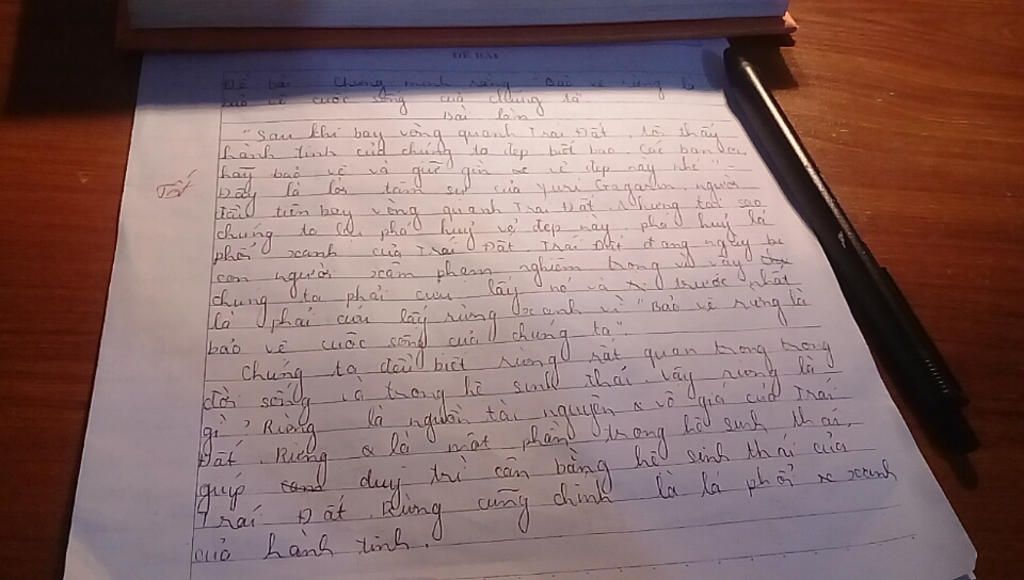 ĐỀ BÀI
Đề bài: Chứng minh rằng "Bảo vệ rừng là
bảo vệ cuộc sống của chúng ta"
Bài làm
"Sau khi bay vòng quanh Trái Đất, tôi thấy
hành tinh của chúng ta đẹp biết bao. Các bạn ơi,
hãy bảo vệ và giữ gìn vẻ đẹp này nhé" -
Tốt
Đây là lời tâm sự của Yuri Gagarin, người
đầu tiên bay vòng quanh Trái Đất. Nhưng tại sao
chúng ta lại phá huỷ vẻ đẹp này, phá huỷ lá
phổi xanh của Trái Đất. Trái Đất đang ngày bị
con người xâm phạm nghiêm trọng vì vậy
chúng ta phải cứu lấy nó và trước nhất
là phải cứu lấy rừng xanh vì "Bảo vệ rừng là
bảo vệ cuộc sống của chúng ta".
Chúng ta đều biết rừng rất quan trọng trong
đời sống và trong hệ sinh thái. Vậy rừng là
gì? Rừng là nguồn tài nguyên vô giá của Trái
Đất. Rừng là một phần trong hệ sinh thái,
giúp duy trì cân bằng hệ sinh thái của
Trái Đất. Rừng cũng chính là lá phổi xanh
của hành tinh.